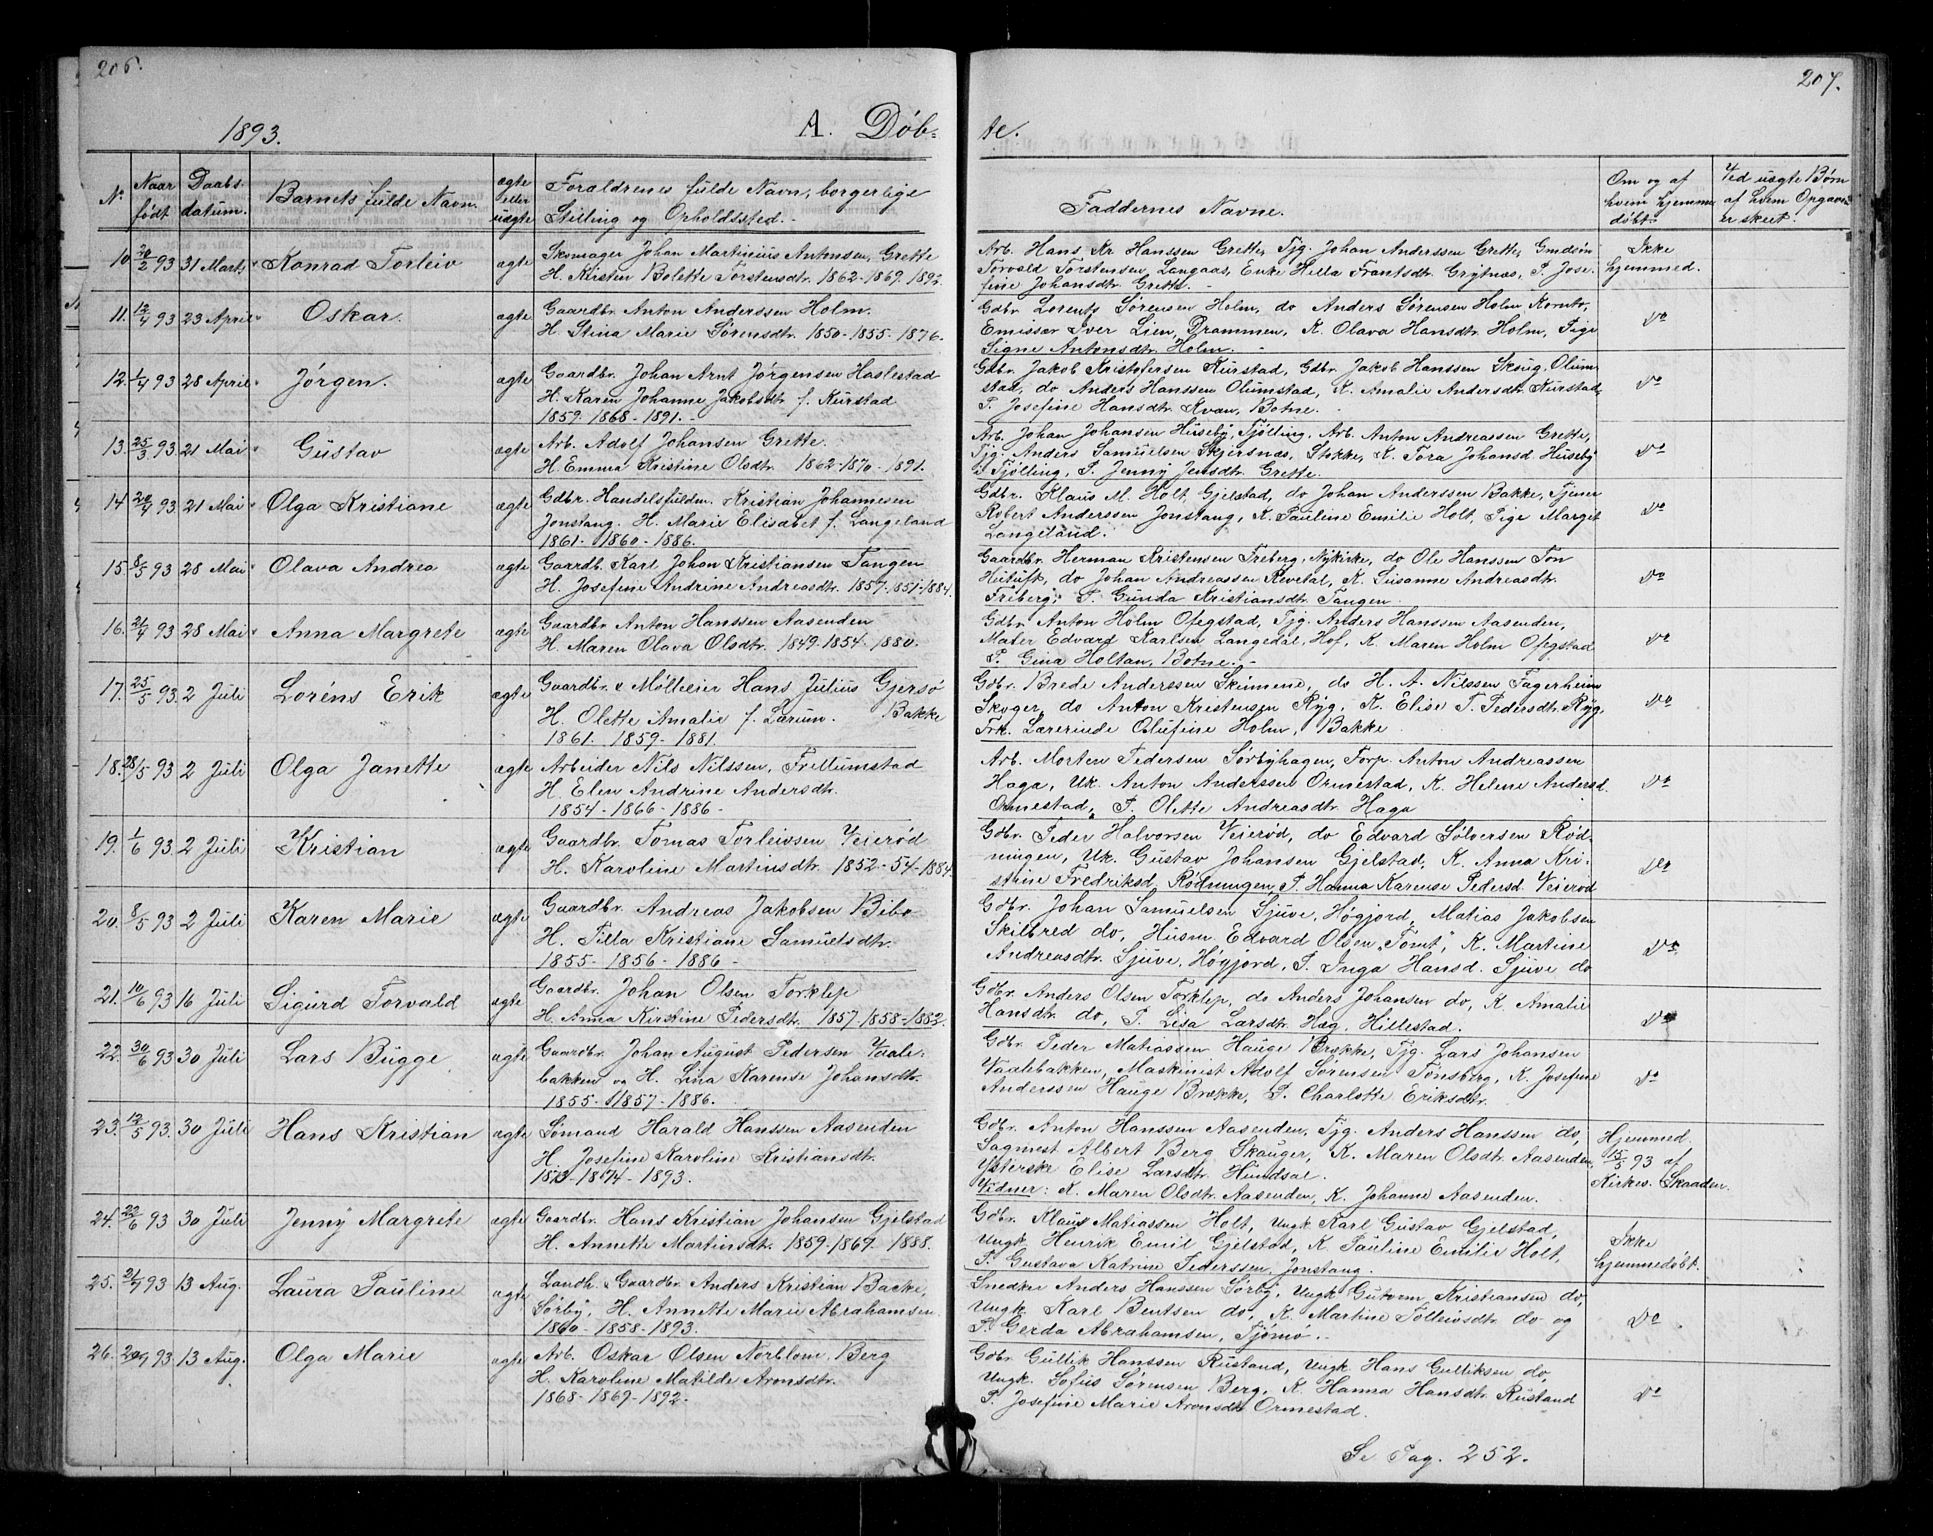 206.
1893.
A. Döb-
No
Naar født
Daabs-datum.
Barnets fulde Navn.
ægte eller uægte
Forældrenes fulde Navn, borgerlige
Stilling og Opholdssted.
10 20/2 93 31 Marts Konrad Torleiv ægte Skomager Johan Martinius Antonsen, Grette
H. Kristen Bolette Torstensdtr. 1862-1869. 1892
11. 12/4 93 23 April Oskar. ægte Gaardbr. Anton Anderssen Holm.
H. Stina Marie Sørensdtr. 1850-1855-1876.
12. 1/4 93 28 April Jörgen. ægte Gaardbr. Johan Arnt Jörgensen Haslestad
H. Karen Johanne Jakobsdtr f. Kürstad
1859-1868-1891.-
13. 25/3 93. 21 Mai Güstav ægte Arb. Adolf Johansen Grette.
H. Emma Kristine Olsdtr. 1862-1870-1891.
14 20/4 93 21 Mai Olga Kristiane ægte Gdbr. Handelsfuldm. Kristian Johannesen
Jonstang. H. Marie Elisabet f. Langeland
1861-1860-1886.
15. 8/5 93 28 Mai Olava Andrea ægte Gaardb. Karl Johan Kristiansen Tangen
H. Josefine Andrine Andreasdtr. 1857-1851-1884.
16. 21/4 93 28 Mai Anna Margrete ægte Gaardbr. Anton Hanssen Aasenden
H. Maren Olava Olsdtr. 1849-1854-1880.
17. 25/5 93. 2 Juli Loréns Erik ægte Gaardbr. & Mölleeier Hans Julius Gjersö
H. Olette Amalie f. Larum. Bakke
1861. 1859-1881.
18. 28/5 93 2 Juli Olga Janette ægte Arbeider Nils Nilssen, Frellumstad
H. Elen Andrine Andersdtr.
1854-1866-1886-
19. 1/6 93. 2 Juli Kristian ægte Gaardbr. Tomas Torleivsen Veierød
H. Karoline Martinsdtr. 1852-54-1884.
20. 8/5 93 2 Juli Karen Marie ægte Gaardbr. Andreas Jakobsen Bibo
H. Tilla Kristiane Samuelsdtr.
1855-1856-1886-
21. 10/6 93 16 Juli Sigurd Torvald ægte Gaardbr. Johan Olsen Torklep
H. Anna Kirstine Pedersdtr. 1857-1858-1882.
22. 30/6 93 30 Juli Lars Bügge ægte Gaardbr. Johan August Pedersen Vaale-
bakken og H. Lina Karense Johansdtr.
1855-1857-1886.
23. 12/5 93. 30 Juli Hans Kristian ægte Sömand Harald Hanssen Aasenden
H. Josefine Karoline Kristiansdtr.
1873-1874-1893.
24. 22/6 93 30 Juli Jenny Margrete ægte Gaardbr. Hans Kristian Johansen Gjelstad
H. Annette Martinsdtr. 1859-1867 1888.
25. 2/7 93 13 Aug. Laura Pauline ægte Landh. & Gaardbr. Anders Kristian Backe,
Sørby, H. Annette Marie Abrahamsen.
1860-1858-1893.
26. 93. 13 Aug. Olga Marie ægte Arb. Oskar Olsen Norblom, Berg
H. Karoline Matilde Aronsdtr.
1868-1869-1892.
207.
te.
Faddernes Navne.
Om og af hvem hjemme døbt.
Ved uægte Børn af hvem Opgaven er skeet.
Arb. Hans Kr Hanssen Grette, Tjg. Johan Anderssen Grette, Gmdsön
Torvald Torstensen, Langaas, Enke Hella Frantsdtr. Grytnæs, P. Jose-
fine Johansdtr. Grette.-
Ikke hjemmed.
Gdbr. Lorents Sørensen Holm, do Anders Sørensen Holm Korntr,
Emissær Iver Lien, Drammen, K. Olava Hansdtr. Holm, Pige
Signe Antonsdtr. Holm.-
Do
Gdbr. Jakob Kristofersen Kürstad, Gdbr. Jakob Hanssen Sksug. Olum-
stad, do Anders Hanssen Olumstad, K. Amalie Andersdtr. Kürstad,
P. Josefine Hansdtr. Kvan, Botne.
Do
Arb. Johan Johansen Hüseby, Tjölling, Arb. Anton Andreassen Grette,
Tjg. Anders Samuelsen Skjersnæs, Stokke, K. Tora Johansd Hüseby
i Tjölling, P. Jenny Jensdtr. Grette.
Do
Gdbr. Klaus M. Holt, Gjelstad, do Johan Anderssen Bakke, Tjener
Robert Anderssen Jonstang, K. Pauline Emilie Holt, Pige Marget
Langeland.
Do
Gaardbr. Herman Kristensen Freberg, Nykirke, do Ole Hanssen Ton
Heituft, do Johan Andreassen Revetal, K. Susanne Andreasdtr.
Freberg, P. Gunda Kristiansdtr. Tangen.
Do
Gdbr. Anton Holm Ofegstad, Tjg. Anders Hanssen Aasenden,
Maler Edvard Karlsen Langedal, Hof, K. Maren Holm Ofegstad
P. Gina Holtan, Botne.-
Do
Gdbr. Brede Anderssen Skimene, do H. A. Nilssen Fagerheim
Skoger, do Anton Kristensen Ryg, K. Elise T. Pedersdtr. Ryg,
Frk. Lærerinde Olufine Holm, Bakke
Do
Arb. Morten Pedersen Sørbyhagen, Forp. Anton Andreassen
Haga, Uk. Anton Anderssen Ormestad, K. Helene Andersd.
Ormestad, P. Olette Andreasdtr. Haga
Do
Gdbr. Peder Halvorsen Veierød, do Edvard Sølversen Rød-
ningen, Uk. Gustav Johansen Gjelstad, K. Anna Kri-
stine Fredriksd. Rødningen, P. Hanna Karense Pedersd. Veierød
Do
Gdbr. Johan Samuelsen Sjuve, Høgjord, Matias Jakobsen
Skilbred do, Husm. Edvard Olsen "Tomt", K. Martine
Andreasdtr. Sjuve, Høgjord, P. Inga Hansd. Sjuve do
Do
Gdbr. Anders Olsen Torklep, do Anders Johansen do, K. Amalie
Hansdtr. do, P. Lisa Larsdtr. Hæg, Hillestad.
Do
Gdbr. Peder Matiassen Hauge Brekke, Tjg. Lars Johansen
Vaalebakken, Maskinist Adolf Sørensen Tönsberg, K. Josefine
Anderssen Hauge Brekke, P. Charlotte Eriksdtr.
Do
Gdbr. Anton Hanssen Aasenden, Tjg. Anders Hanssen do,
Sagmest Albert Berg Skauger, K. Maren Olsdtr. Aasenden,
Ysterske Elise Larsdtr. Hundsal.
Vidner: K. Maren Olsdtr. Aasenden, K. Johanne Aasenden.
Hjemmed. 15/5 93 af Kirkes. Skaaden.
Gdbr. Klaus Matiassen Holt, Ungk. Karl Gustav Gjelstad,
Ungk. Henrik Emil Gjelstad, K. Pauline Emilie Holt,
P. Gustava Katrine Pederssen, Jonstang.
Ikke hjemmedøbt.
Snedker Anders Hanssen Sørby, Ungk. Gutorm Kristiansen do,
Ungk. Karl Bentsen do, K. Martine Tolleivsdtr. do og
P. Gerda Abrahamsen, Tjømø.-
Do
Gdbr Gullik Hanssen Rustand, Ungk. Hans Gulliksen do,
Ungk. Sofus Sørensen Berg, K. Hanna Hansdtr. Rustand
P. Josefine Marie Aronsdtr Ormestad.
Do
Se Pag. 252.